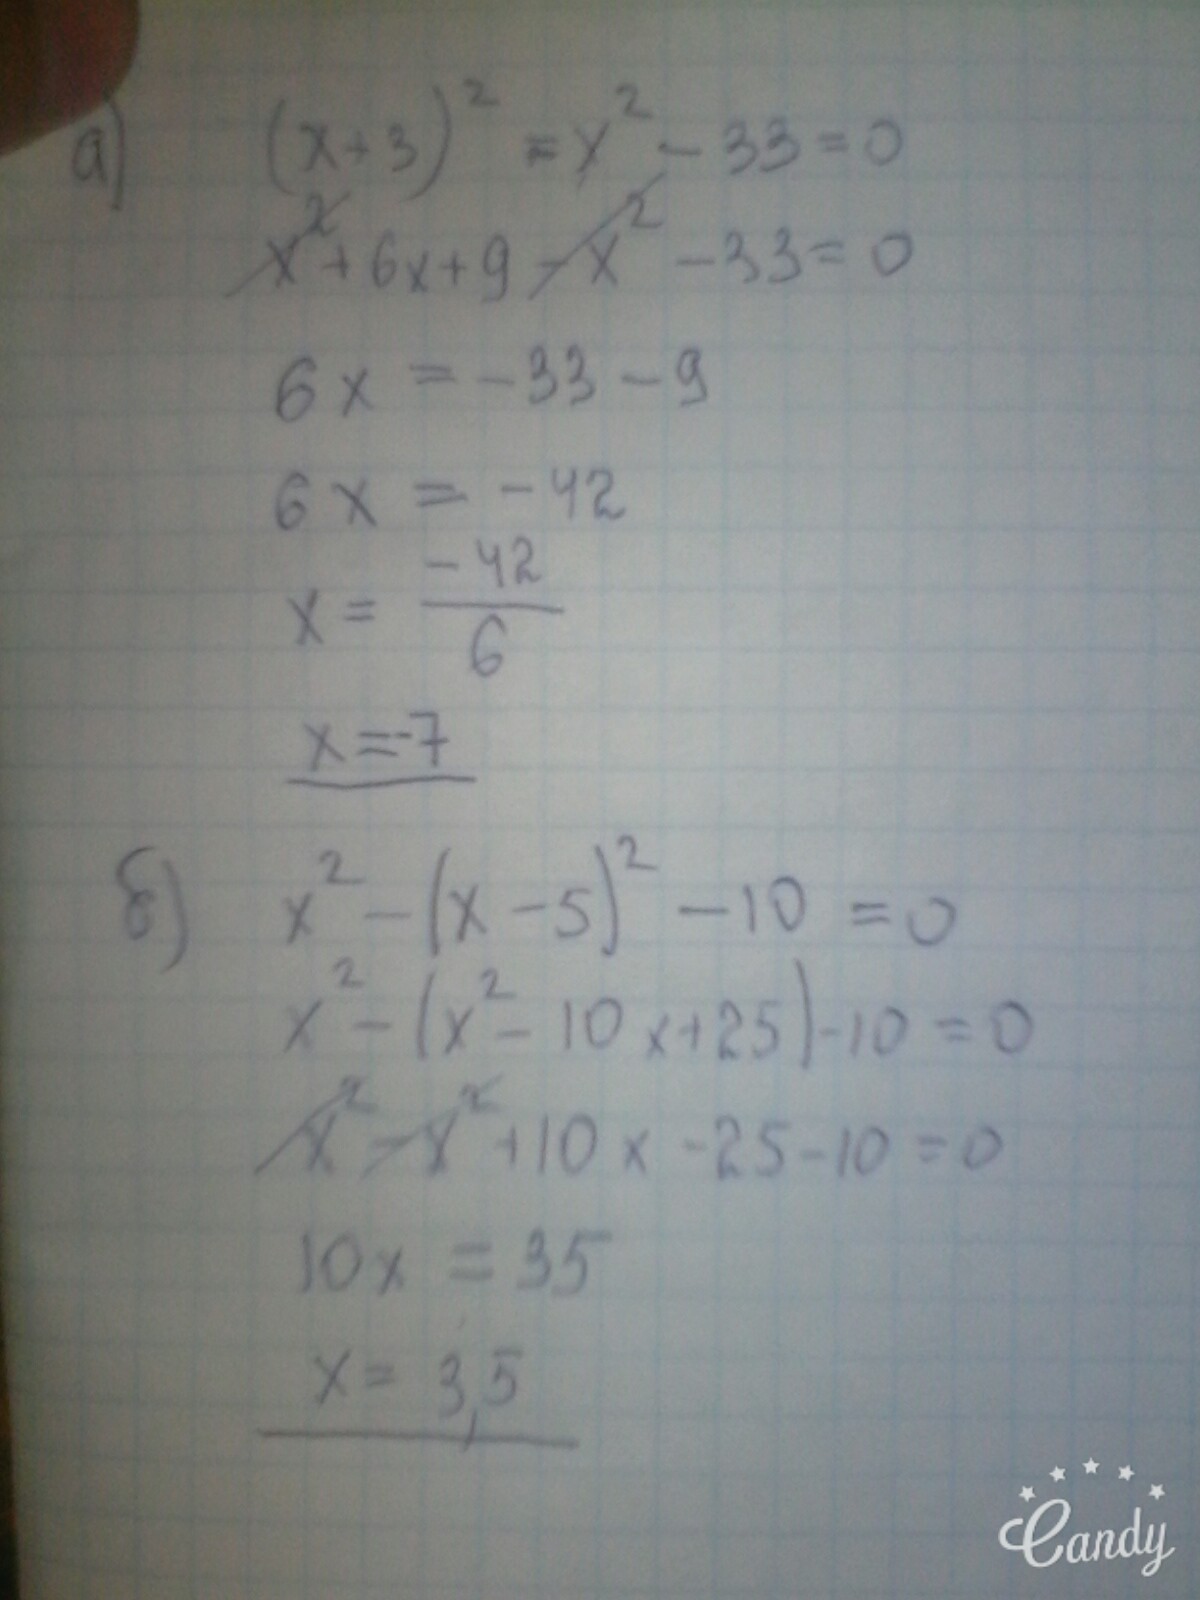 а) (x+3)² = x² - 33 = 0
x² + 6x + 9 - x² - 33 = 0
6x = -33 - 9
6x = -42
x = -42/6
x = -7
б) x² - (x - 5)² - 10 = 0
x² - (x² - 10x + 25) - 10 = 0
x² - x² + 10x - 25 - 10 = 0
10x = 35
x = 3,5
Candy